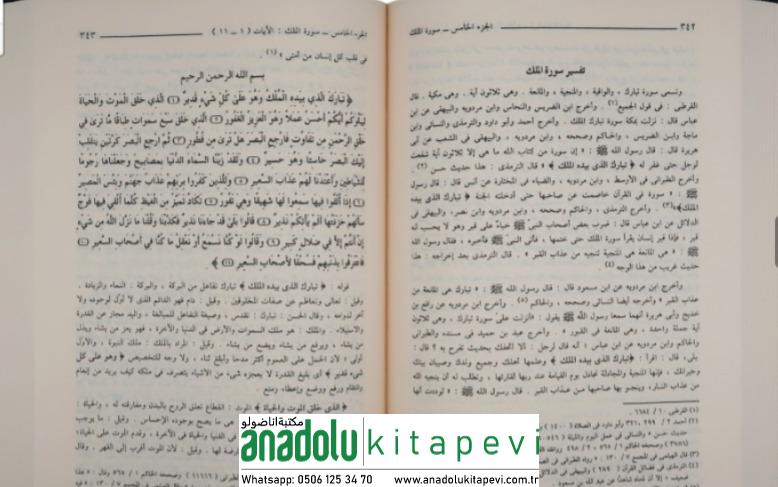 ٣٤٢ الجزء الخامس ــ سورة الملك
تفسير سورة الملك
وتسمى سورة تبارك ، والواقية ، والمنجية ، والمانعة . وهى ثلاثون آية . وهى مكية . قال
القرطبى : فى قول الجميع (١) . وأخرج ابن الضريس والنحاس وابن مردويه والبيهقى عن ابن
عباس قال : نزلت بمكة سورة تبارك الملك . وأخرج أحمد وأبو داود والترمذى والنسائى وابن
ماجة وابن الضريس ، والحاكم وصححه ، وابن مردويه ، والبيهقى فى الشعب عن أبى
هريرة قال : قال رسول الله ﷺ : « إن سورة من كتاب الله ما هى إلا ثلاثون آية شفعت
لرجل حتى غفر له ﴿ تبارك الذى بيده الملك ﴾ » . قال الترمذى : هذا حديث حسن (٢) .
وأخرج الطبرانى فى الأوسط ، وابن مردويه ، والضياء فى المختارة عن أنس قال : قال رسول
ﷺ : « سورة فى القرآن خاصمت عن صاحبها حتى أدخلته الجنة ﴿ تبارك الذى بيده
الملك ﴾ » (٣) . وأخرج الترمذى ، والحاكم وصححه ، وابن مردويه وابن نصر ، والبيهقى فى
الدلائل عن ابن عباس قال : ضرب بعض أصحاب النبى ﷺ خباءً على قبر وهو لا يحسب أنه
قبر ، فإذا قبر إنسان يقرأ سورة الملك حتى ختمها ، فأتى النبى ﷺ فأخبره ، فقال رسول الله
ﷺ : « هى المانعة هى المنجية تنجيه من عذاب القبر » . قال الترمذى بعد إخراجه : هذا
حديث غريب من هذا الوجه (٤) .
وأخرج ابن مردويه عن ابن مسعود قال : قال رسول الله ﷺ : « تبارك هى المانعة من
عذاب القبر » وأخرجه أيضا النسائى وصححه ، والحاكم (٥) . وأخرج ابن مردويه عن رافع بن
خديج وأبى هريرة أنهما سمعا رسول الله ﷺ يقول : « أنزلت علىّ سورة تبارك ، وهى ثلاثون
آية جملة واحدة ، وهى المانعة فى القبور » . وأخرج عبد بن حميد فى مسنده والطبرانى
والحاكم وابن مردويه عن ابن عباس ؛ أنه قال لرجل : ألا أتحفك بحديث تفرح به ؟ قال :
بلى ، قال : اقرأ : ﴿ تبارك الذى بيده الملك ﴾ وعلمها أهلك وجميع ولدك وصبيان بيتك
وجيرانك ، فإنها المنجية والمجادلة تجادل يوم القيامة عند ربها لقارئها ، وتطلب له أن ينجيه الله
من عذاب النار ، وينجو بها صاحبها من عذاب القبر . قال رسول الله ﷺ : « لوددت أنها
(١) القرطبى ١٠ / ٦٦٨٤ .
٣٤٣ الجزء الخامس ــ سورة الملك : الآيات ( ١ ــ ١١ )
فى قلب كل إنسان من أمتى » (١) .
بسم الله الرحمن الرحيم
﴿ تَبَارَكَ الَّذِي بِيَدِهِ الْمُلْكُ وَهُوَ عَلَىٰ كُلِّ شَيْءٍ قَدِيرٌ ① الَّذِي خَلَقَ الْمَوْتَ وَالْحَيَاةَ
لِيَبْلُوَكُمْ أَيُّكُمْ أَحْسَنُ عَمَلًا وَهُوَ الْعَزِيزُ الْغَفُورُ ② الَّذِي خَلَقَ سَبْعَ سَمَوَاتٍ طِبَاقًا مَّا تَرَىٰ فِي
خَلْقِ الرَّحْمَنِ مِن تَفَاوُتٍ فَارْجِعِ الْبَصَرَ هَلْ تَرَىٰ مِن فُطُورٍ ③ ثُمَّ ارْجِعِ الْبَصَرَ كَرَّتَيْنِ يَنقَلِبْ
إِلَيْكَ الْبَصَرُ خَاسِئًا وَهُوَ حَسِيرٌ ④ وَلَقَدْ زَيَّنَّا السَّمَاءَ الدُّنْيَا بِمَصَابِيحَ وَجَعَلْنَاهَا رُجُومًا
لِّلشَّيَاطِينِ وَأَعْتَدْنَا لَهُمْ عَذَابَ السَّعِيرِ ⑤ وَلِلَّذِينَ كَفَرُوا بِرَبِّهِمْ عَذَابُ جَهَنَّمَ وَبِئْسَ الْمَصِيرُ
⑥ إِذَا أُلْقُوا فِيهَا سَمِعُوا لَهَا شَهِيقًا وَهِيَ تَفُورُ ⑦ تَكَادُ تَمَيَّزُ مِنَ الْغَيْظِ كُلَّمَا أُلْقِيَ فِيهَا فَوْجٌ
سَأَلَهُمْ خَزَنَتُهَا أَلَمْ يَأْتِكُمْ نَذِيرٌ ⑧ قَالُوا بَلَىٰ قَدْ جَاءَنَا نَذِيرٌ فَكَذَّبْنَا وَقُلْنَا مَا نَزَّلَ اللَّهُ مِن شَيْءٍ
إِنْ أَنتُمْ إِلَّا فِي ضَلَالٍ كَبِيرٍ ⑨ وَقَالُوا لَوْ كُنَّا نَسْمَعُ أَوْ نَعْقِلُ مَا كُنَّا فِي أَصْحَابِ السَّعِيرِ ⑩
فَاعْتَرَفُوا بِذَنبِهِمْ فَسُحْقًا لِّأَصْحَابِ السَّعِيرِ ⑪ ﴾ .
قوله : ﴿ تبارك الذى بيده الملك ﴾ تبارك تفاعل من البركة ، والبركة : النماء والزيادة ،
وقيل : تعالى وتعاظم عن صفات المخلوقين . وقيل : دام فهو الدائم الذى لا أوّل لوجوده ولا
آخر لدوامه ، وقال الحسن : تبارك : تقدس ، وصيغة التفاعل للمبالغة ، واليد مجاز عن القدرة
والاستيلاء . والملك : هو ملك السموات والأرض فى الدنيا والآخرة ، فهو يعز من يشاء ويذل
من يشاء ، ويرفع من يشاء ويضع من يشاء . وقيل : المراد بالملك : ملك النبوة ، والأوّل
أولى ؛ لأن الحمل على العموم أكثر مدحا وأبلغ ثناء ، ولا وجه للتخصيص ﴿ وهو على كل
شىء قدير ﴾ أى بليغ القدرة لا يعجزه شىء من الأشياء يتصرف فى ملكه كيف يريد من إنعام
وانتقام ورفع ووضع وإعطاء ومنع .
﴿ الذى خلق الموت والحياة ﴾ الموت : انقطاع تعلق الروح بالبدن ومفارقته له ، والحياة :
مكتبة اناضولو
anadolu kitapevi
Whatsapp: 0506 125 34 70 www.anadolukitapevi.com.tr